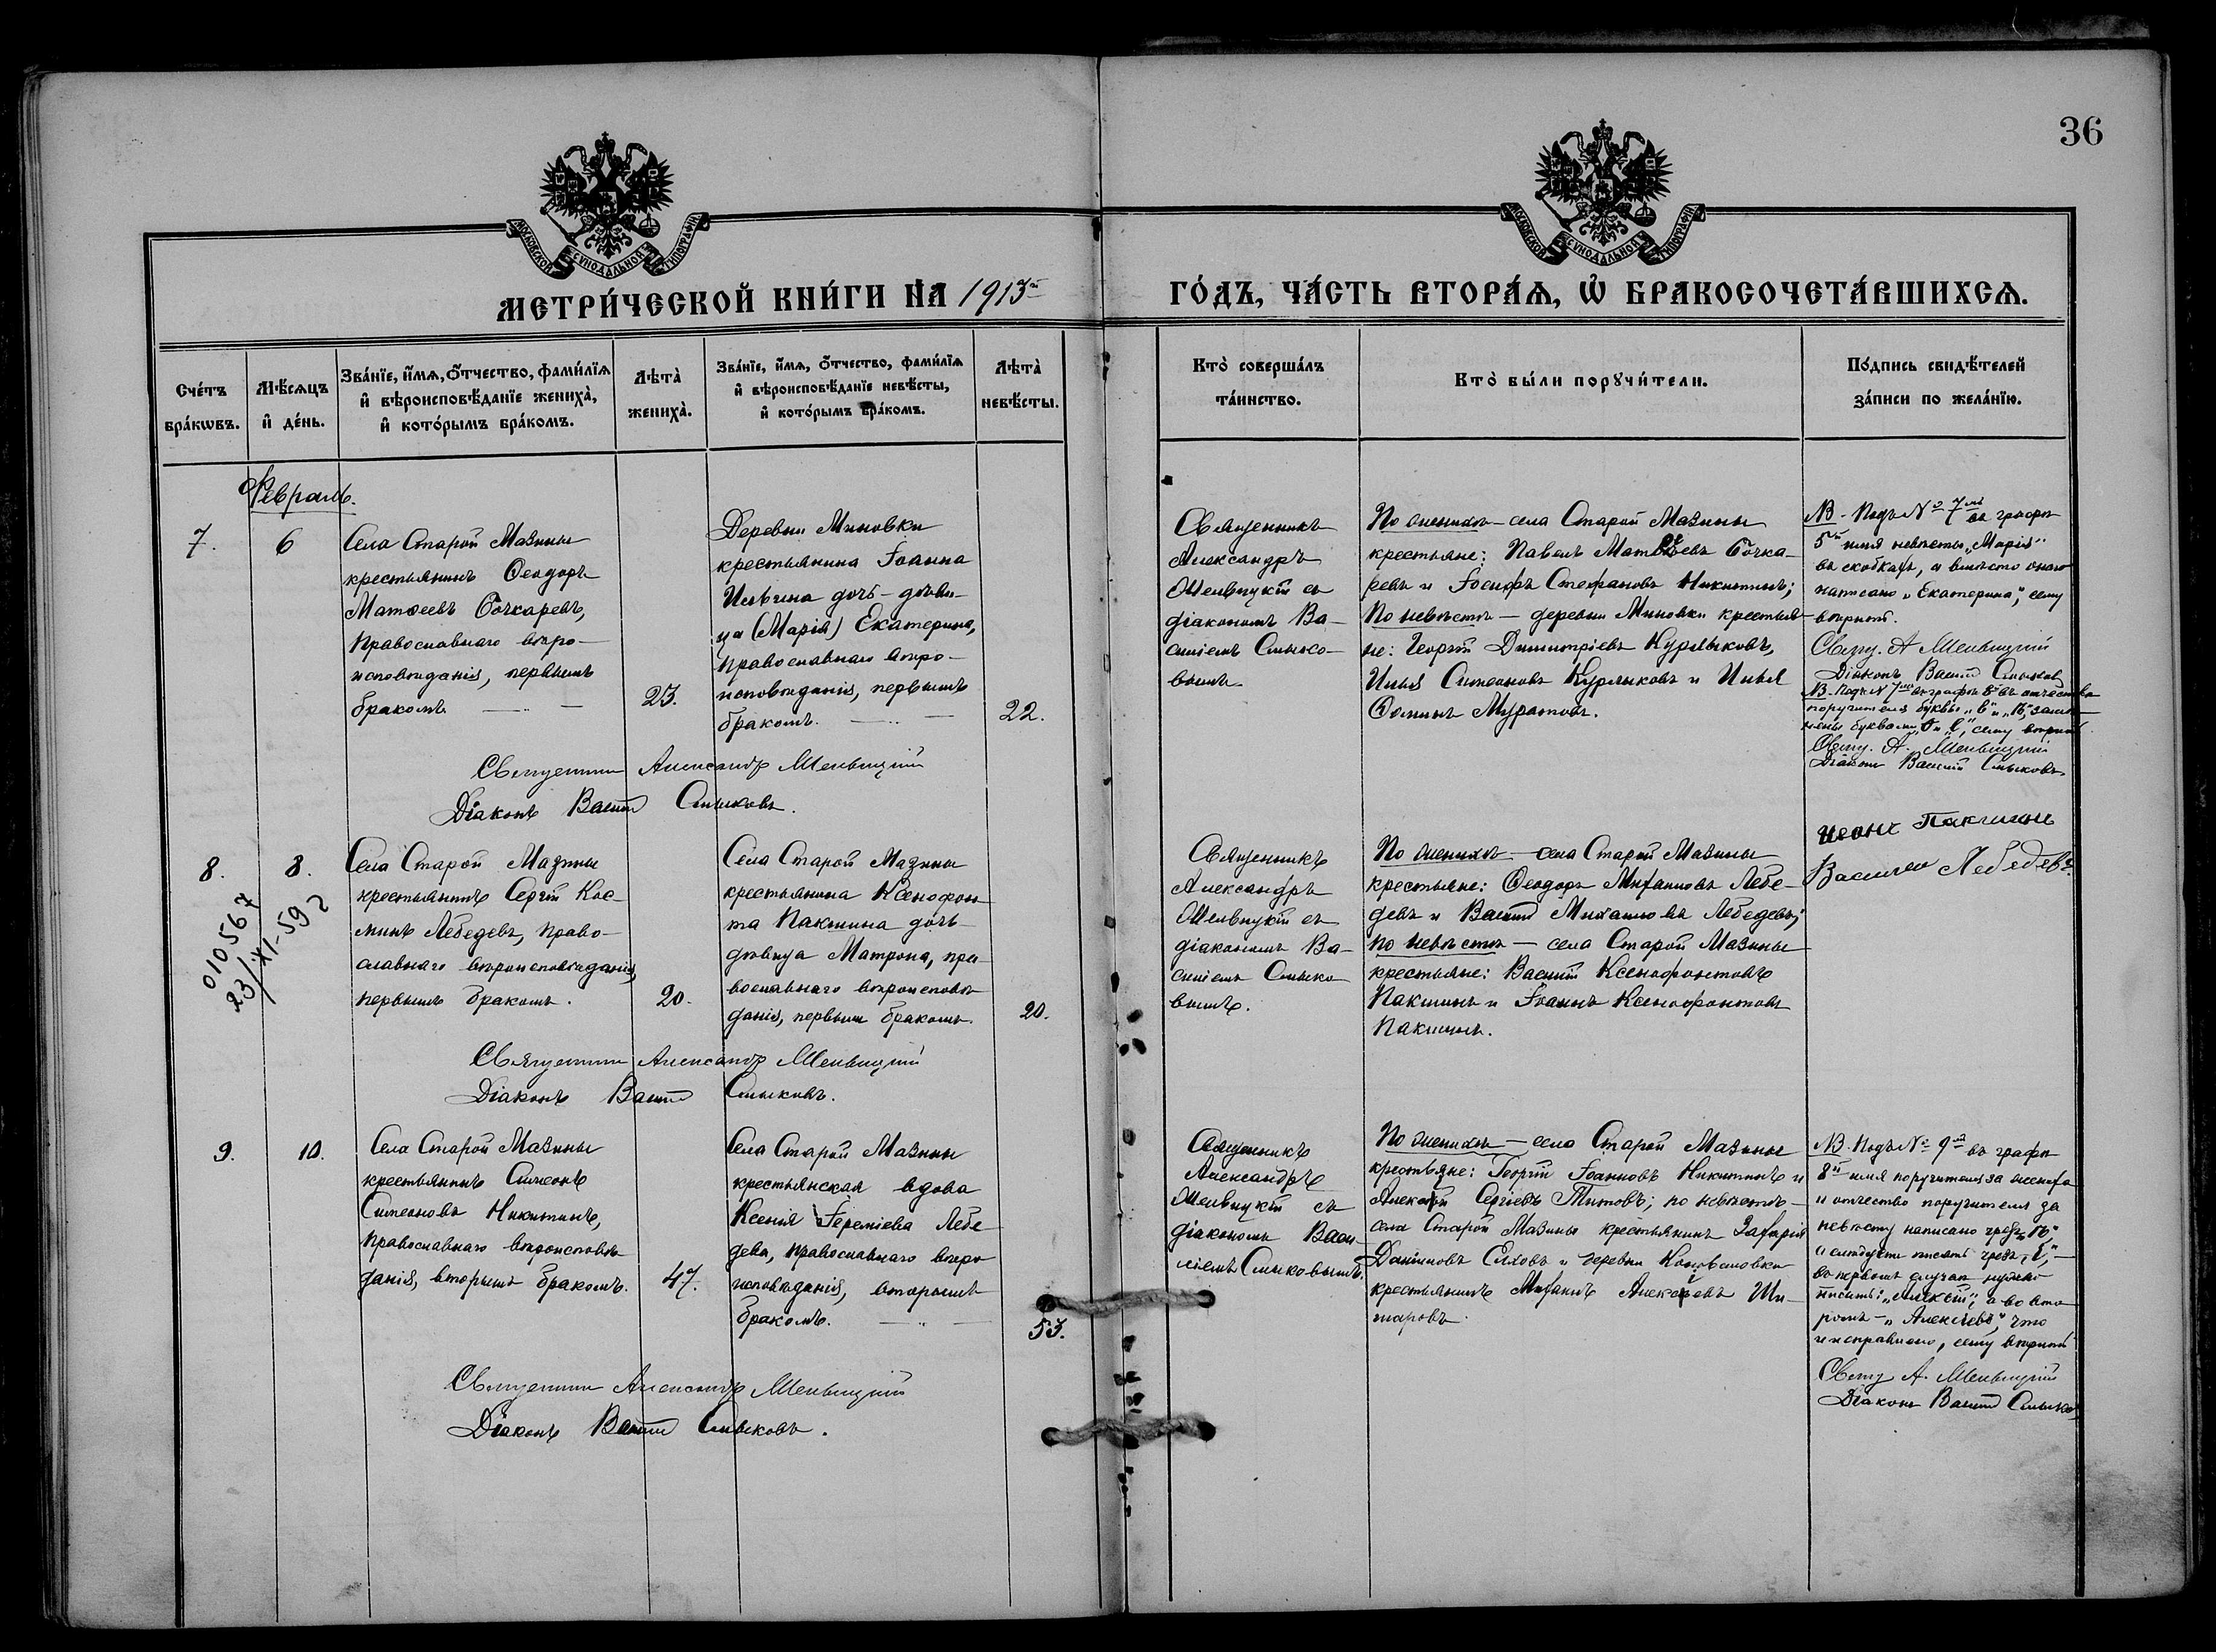 36
МОСКОВСКОЙ СУНОДАЛЬНОЙ ТИПОГРАФІИ
МОСКОВСКОЙ СУНОДАЛЬНОЙ ТИПОГРАФІИ
МЕТРИ́ЧЕСКОЙ КНИ́ГИ НА 1913й
ГО́ДЪ, ЧА́СТЬ ВТОРА́Ѧ, Ѡ҆ БРАКОСОЧЕТА́ВШИХСѦ.
Сче́тъ бра́кѡвъ.
Мѣ́сѧцъ и҆ де́нь.
Зва́нїе, и҆́мѧ, ѻ҆́тчество, фами́лїѧ
и҆ вѣроисповѣ́данїе жениха̀,
и҆ кото́рымъ бра́комъ.
Лѣта̀ жениха̀.
Зва́нїе, и҆́мѧ, ѻ҆́тчество, фами́лїѧ
и҆ вѣроисповѣ́данїе невѣ́сты,
и҆ кото́рымъ бра́комъ.
Лѣта̀ невѣ́сты.
Кто̀ соверша́лъ
та́инство.
Кто̀ бы́ли порꙋчи́тели.
По́дпись свидѣ́телей
за́писи по жела́нїю.
Февраль.
7.
6
Села Старой Мазины
крестьянинъ Ѳеодоръ
Матѳеевъ Бочкаревъ,
православнаго вѣро-
исповѣданія, первымъ
бракомъ.
23.
Деревни Миновки
крестьянина Іоанна
дочь - дѣви-
ца (Марія) Екатерина,
православнаго вѣро-
исповѣданія, первымъ
бракомъ.
22.
Священникъ
Александръ
Мельницкій съ
діакономъ Ва-
силіемъ Смыко-
вымъ
По женихѣ - села Старой Мазины
крестьяне: Павелъ Матѳеевъ Бочка-
ревъ и Іосифъ Стефановъ Никитинъ;
По невѣстѣ - деревни Миновки крестья-
не: Георгій Димитріевъ Курлыковъ,
Илья Симеоновъ Курлыковъ и Илья
Ѳоминъ Муратовъ.
NB. Подъ № 7мъ въ графѣ
5й имя невѣсты „Марія"
въ скобкахъ, а вмѣсто онаго
написано „Екатерина", сему
вѣрить.
Свящ. А Мельницкій
Діаконъ Василій Смыковъ
NB. Подъ № 7мъ въ графѣ 8й въ отчествѣ
поручителя буквы „в" и „ѣ" замѣ-
нены буквами „ѳ" и „е", сему вѣрить.
Свящ. А. Мельницкій
Діаконъ Василій Смыковъ
Священникъ Александръ Мельницкій
Діаконъ Василій Смыковъ.
8.
8.
010567
23/XI-59 г
Села Старой Мазины
крестьянинъ Сергій Кос-
минъ Лебедевъ, право-
славнаго вѣроисповѣданія,
первымъ бракомъ.
20.
Села Старой Мазины
крестьянина Ксенофон-
та Пакшина дочь-
дѣвица Матрона, пра-
вославнаго вѣроисповѣ-
данія, первымъ бракомъ.
20.
Священникъ
Александръ
Мельницкій съ
діакономъ Ва-
силіемъ Смыко-
вымъ.
По женихѣ - села Старой Мазины
крестьяне: Ѳеодоръ Михаиловъ Лебе-
девъ и Василій Михаиловъ Лебедевъ;
по невѣстѣ - села Старой Мазины
крестьяне: Василій Ксенофонтовъ
Пакшинъ и Іоаннъ Ксенофонтовъ
Пакшинъ.
Пакшинъ
Василій Лебедевъ
Священникъ Александръ Мельницкій
Діаконъ Василій Смыковъ.
9.
10.
Села Старой Мазины
крестьянинъ Симеонъ
Симеоновъ Никитинъ,
православнаго вѣроисповѣ-
данія, вторымъ бракомъ.
47.
Села Старой Мазины
крестьянская вдова
Ксенія Іереміева Лебе-
дева, православнаго вѣро-
исповѣданія, вторымъ
бракомъ.
53.
Священникъ
Александръ
Мельницкій съ
діакономъ Васи-
ліемъ Смыковымъ.
По женихѣ - села Старой Мазины
крестьяне: Георгій Іоанновъ Никитинъ и
Алексій Сергіевъ Титовъ; по невѣстѣ -
села Старой Мазины крестьянинъ Захарія
Даніиловъ и деревни
крестьянинъ Михаилъ Алексіевъ Ши-
таровъ.
NB. Подъ № 9мъ въ графѣ
8й имя поручителя за жениха
и отчество поручителя за
невѣсту написано чрезъ „ѣ",
а слѣдуетъ писать чрезъ „і",
въ первомъ случаѣ нужно
писать: „Алексій", а во вто-
ромъ - „Алексіевъ", что
и исправлено, сему вѣрить
Свящ А. Мельницкій
Діаконъ Василій Смыков
Священникъ Александръ Мельницкій
Діаконъ Василій Смыковъ.